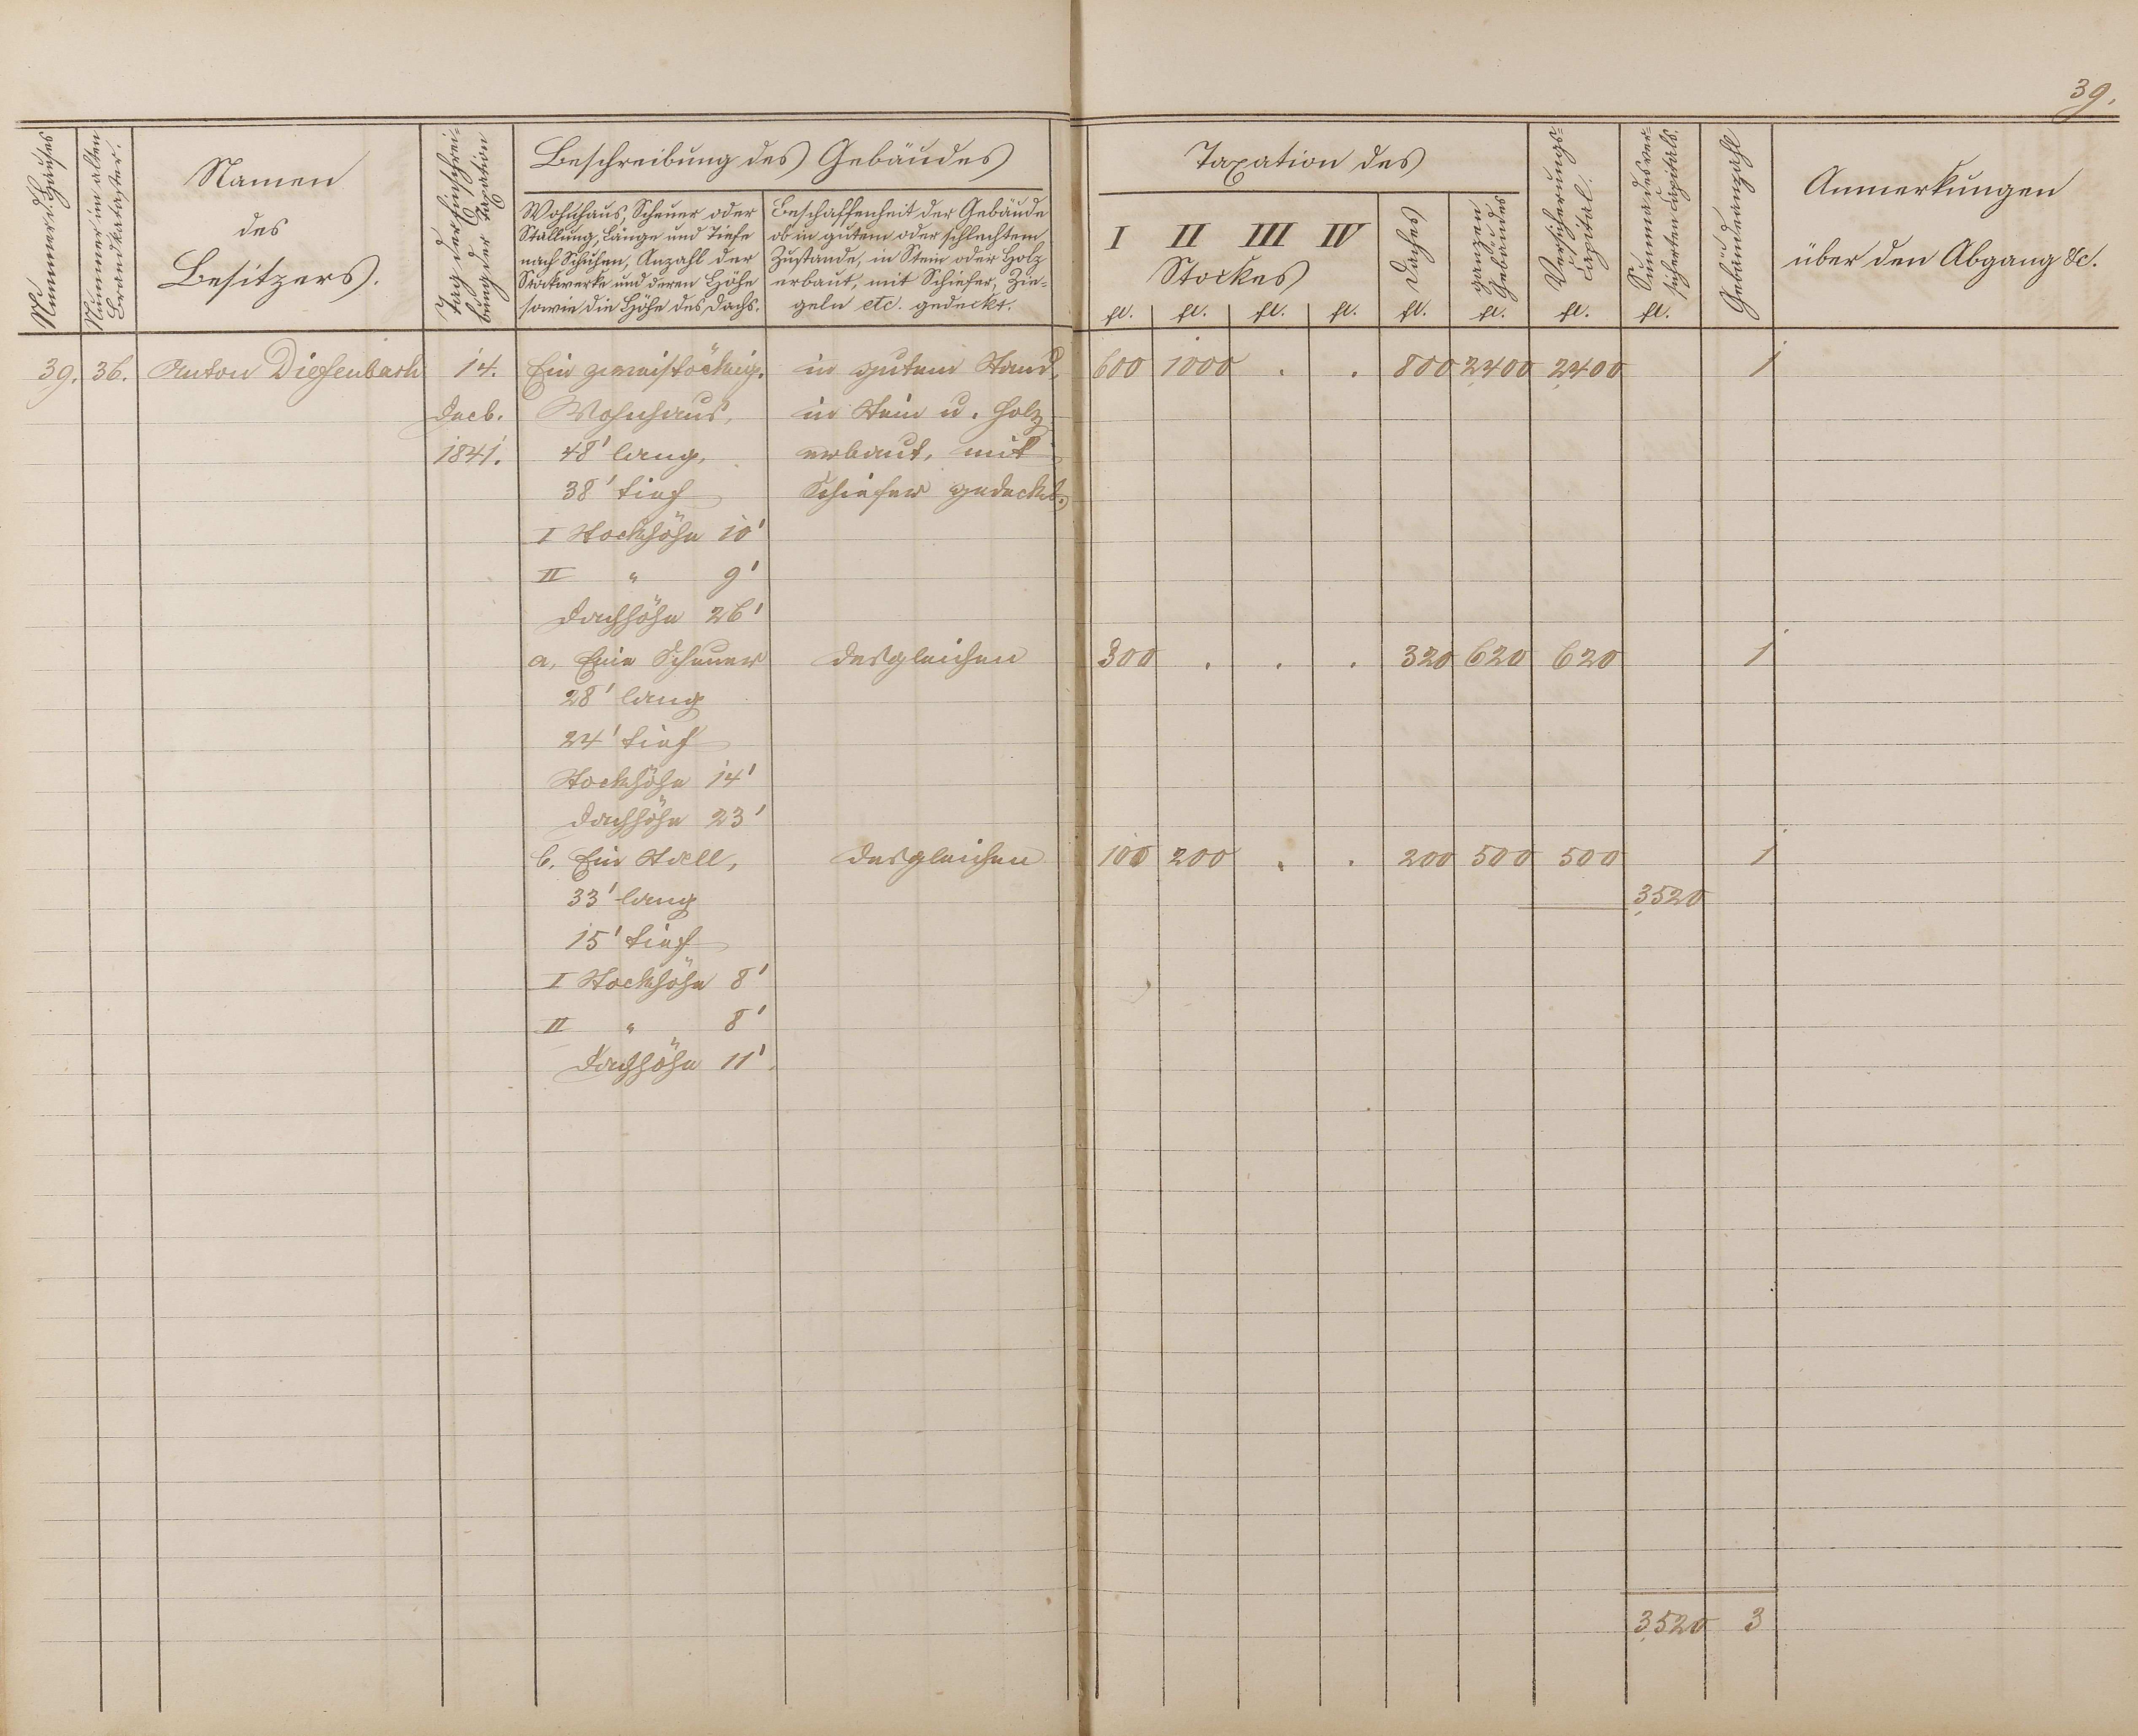 39.
Nummer d. Hauses
Nummer im alten
Brandkataster.
Namen
des
Besitzers.
Tag der Einschrei-
bung der Taxation
Beschreibung des Gebäudes
Wohnhaus, Scheuer oder
Stallung, Länge und Tiefe
nach Schuhen, Anzahl der
Stockwerke und deren Höhe
sowie die Höhe des Dachs.
Beschaffenheit der Gebäude
ob in gutem oder schlechtem
Zustande, in Stein oder Holz
erbaut, mit Schiefer, Zie-
geln etc. gedeckt.
Taxation des
I II III IV
Stockes
Daches
ganzen
Gebäudes
Versicherungs-
Capital.
Summa des ver-
sicherten Capitals.
Gebäudeanzahl
Anmerkungen
über den Abgang &c.
fl. fl. fl. fl. fl. fl. fl. fl.
39. 36. Anton Diefenbach 14. Ein zweistöckig. in gutem Stand, 600 1000 . . 800 2400 2400 1
Decb. Wohnhaus, in Stein u. Holz
1841. 48' lang, erbaut, mit
38' tief Schiefer gedeckt.
I Stockhöhe 10'
II " 9'
Dachhöhe 26'
a, Eine Scheuer desgleichen 300 . . . 320 620 620 1
28' lang
24' tief
Stockhöhe 14'
Dachhöhe 23'
b, Ein Stall, desgleichen 100 200 . . 200 500 500 1
33' lang 3520
15' tief
I Stockhöhe 8'
II " 8'
Dachhöhe 11'
3520 3